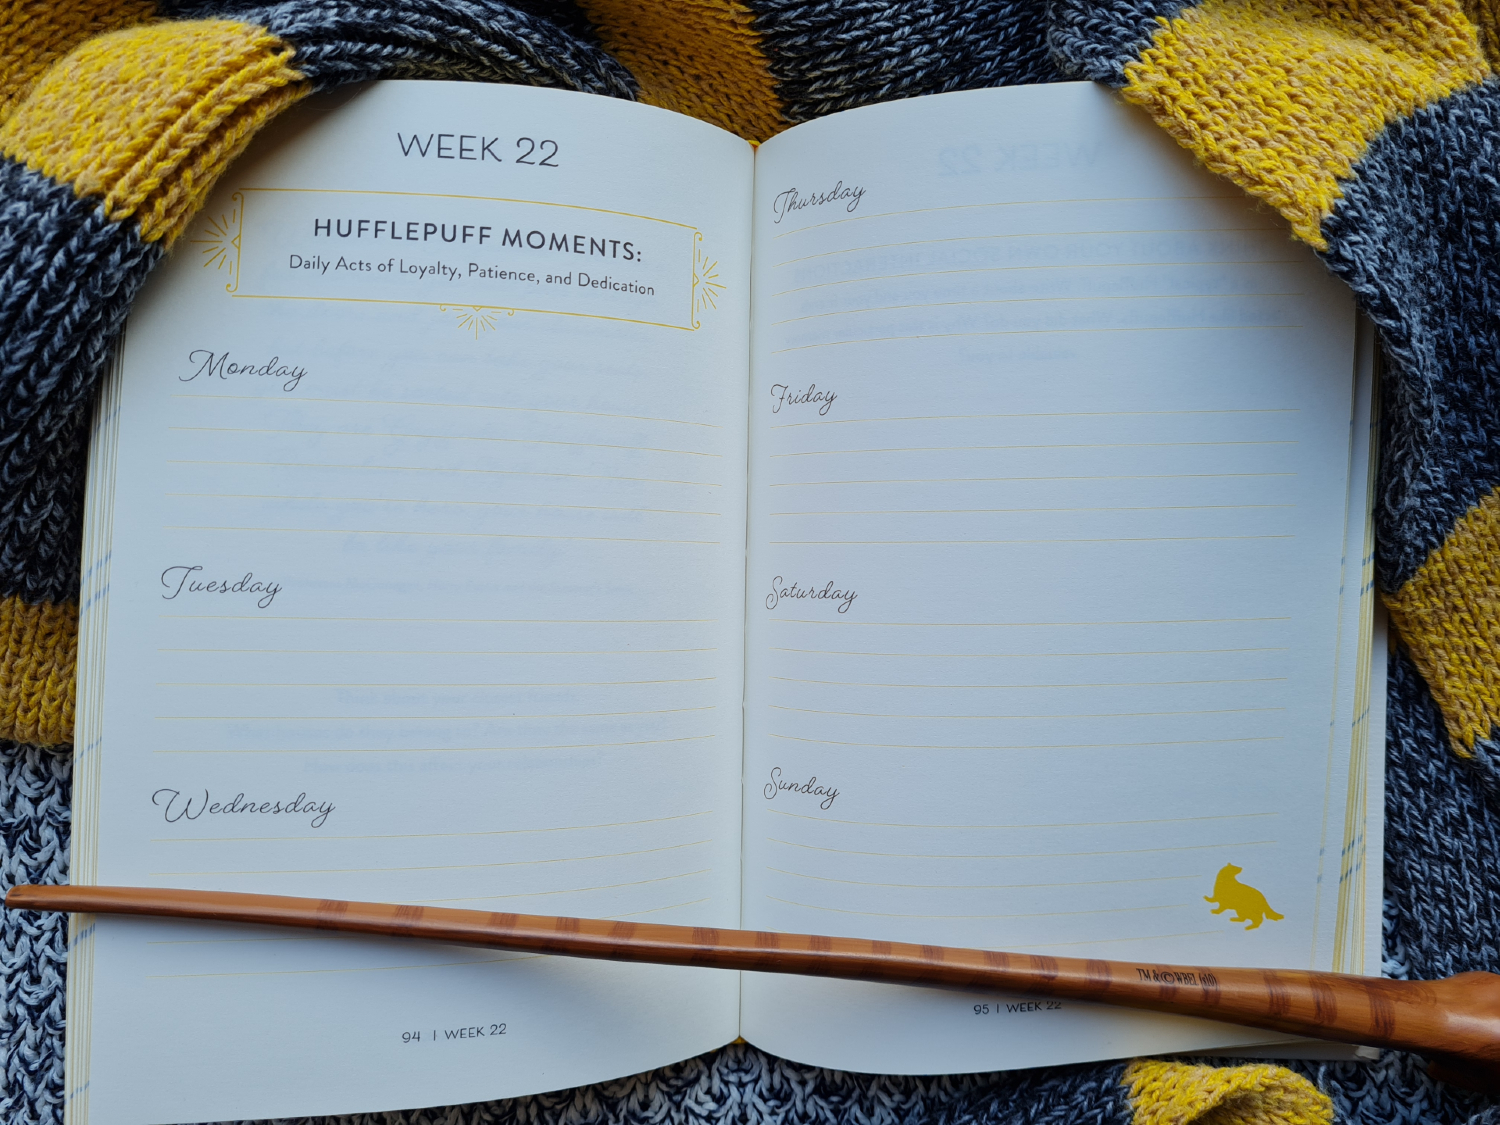 WEEK 22
HUFFLEPUFF MOMENTS:
Daily Acts of Loyalty, Patience, and Dedication
Monday
Tuesday
Wednesday
94 | WEEK 22
Thursday
Friday
Saturday
Sunday
TM & © WBEI
95 | WEEK 22